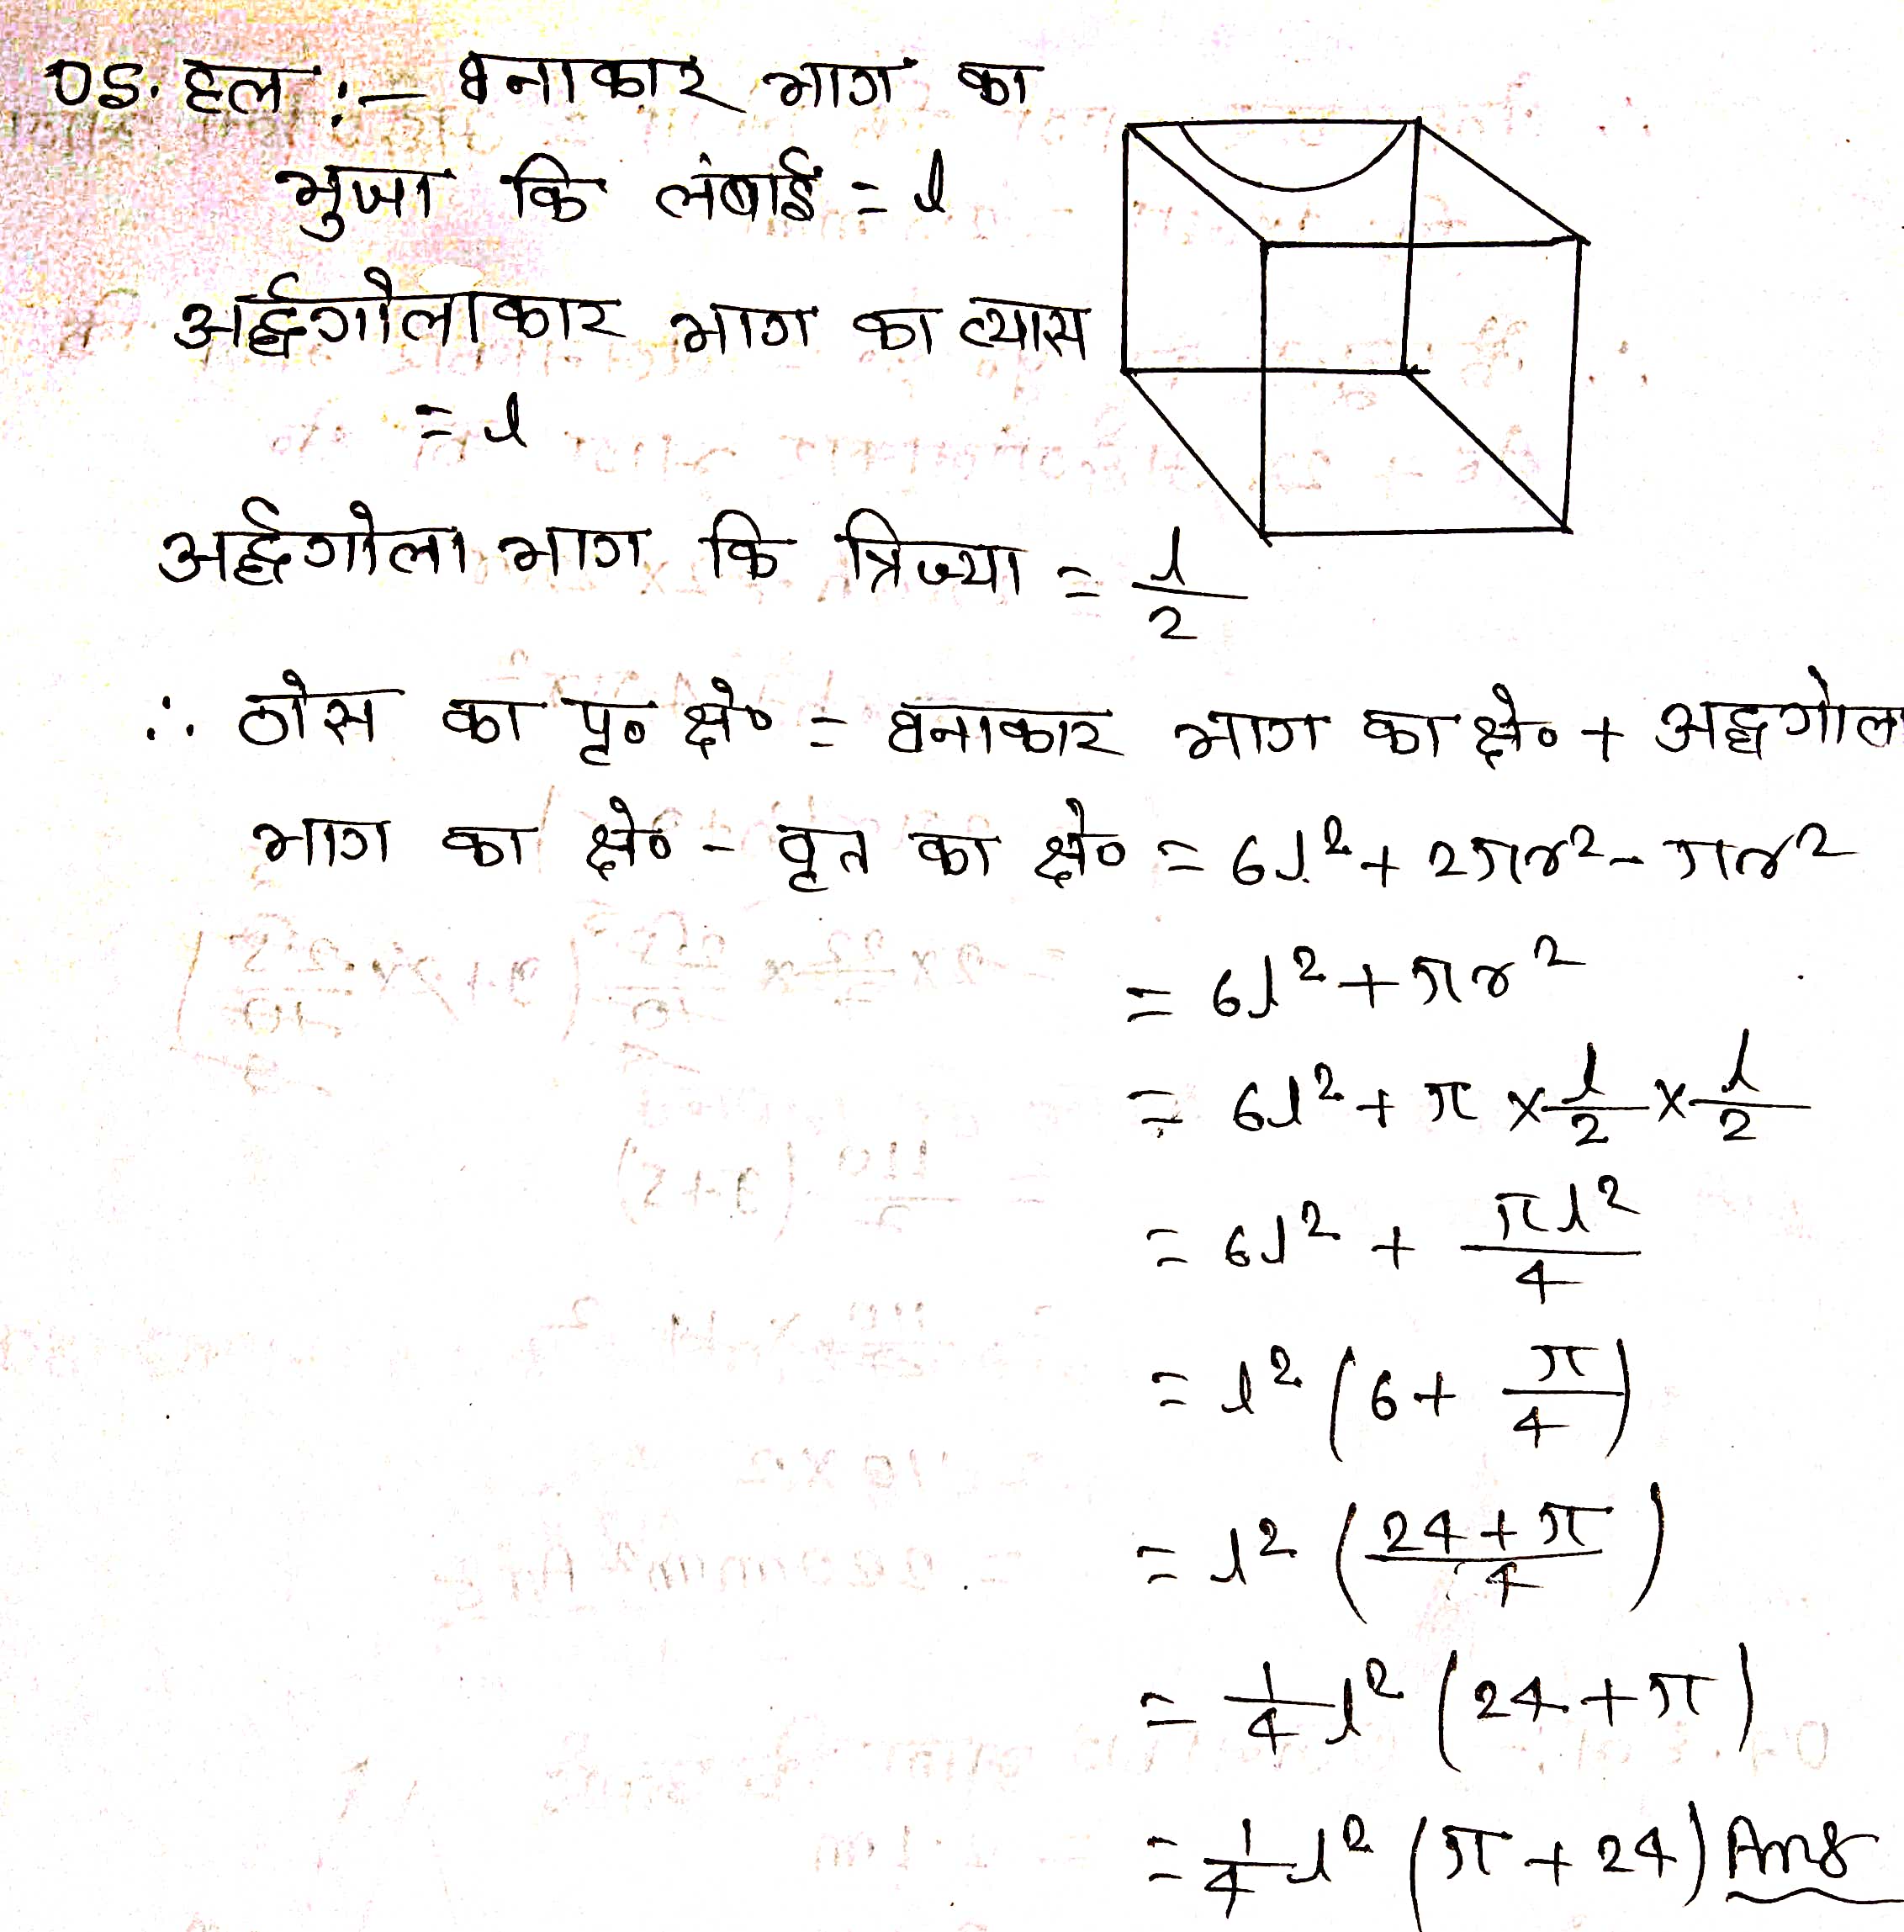 05. हल :- घनाकार भाग का
भुजा कि लंबाई = l
अर्द्धगोलाकार भाग का व्यास
= l
अर्द्धगोला भाग कि त्रिज्या = l/2
∴ ठोस का पृ० क्षे० = घनाकार भाग का क्षे० + अर्द्धगोला
भाग का क्षे० - वृत का क्षे० = 6l² + 2πr² - πr²
= 6l² + πr²
= 6l² + π × l/2 × l/2
= 6l² + πl²/4
= l² (6 + π/4)
= l² (24 + π/4)
= 1/4 l² (24 + π)
= 1/4 l² (π + 24) Ans